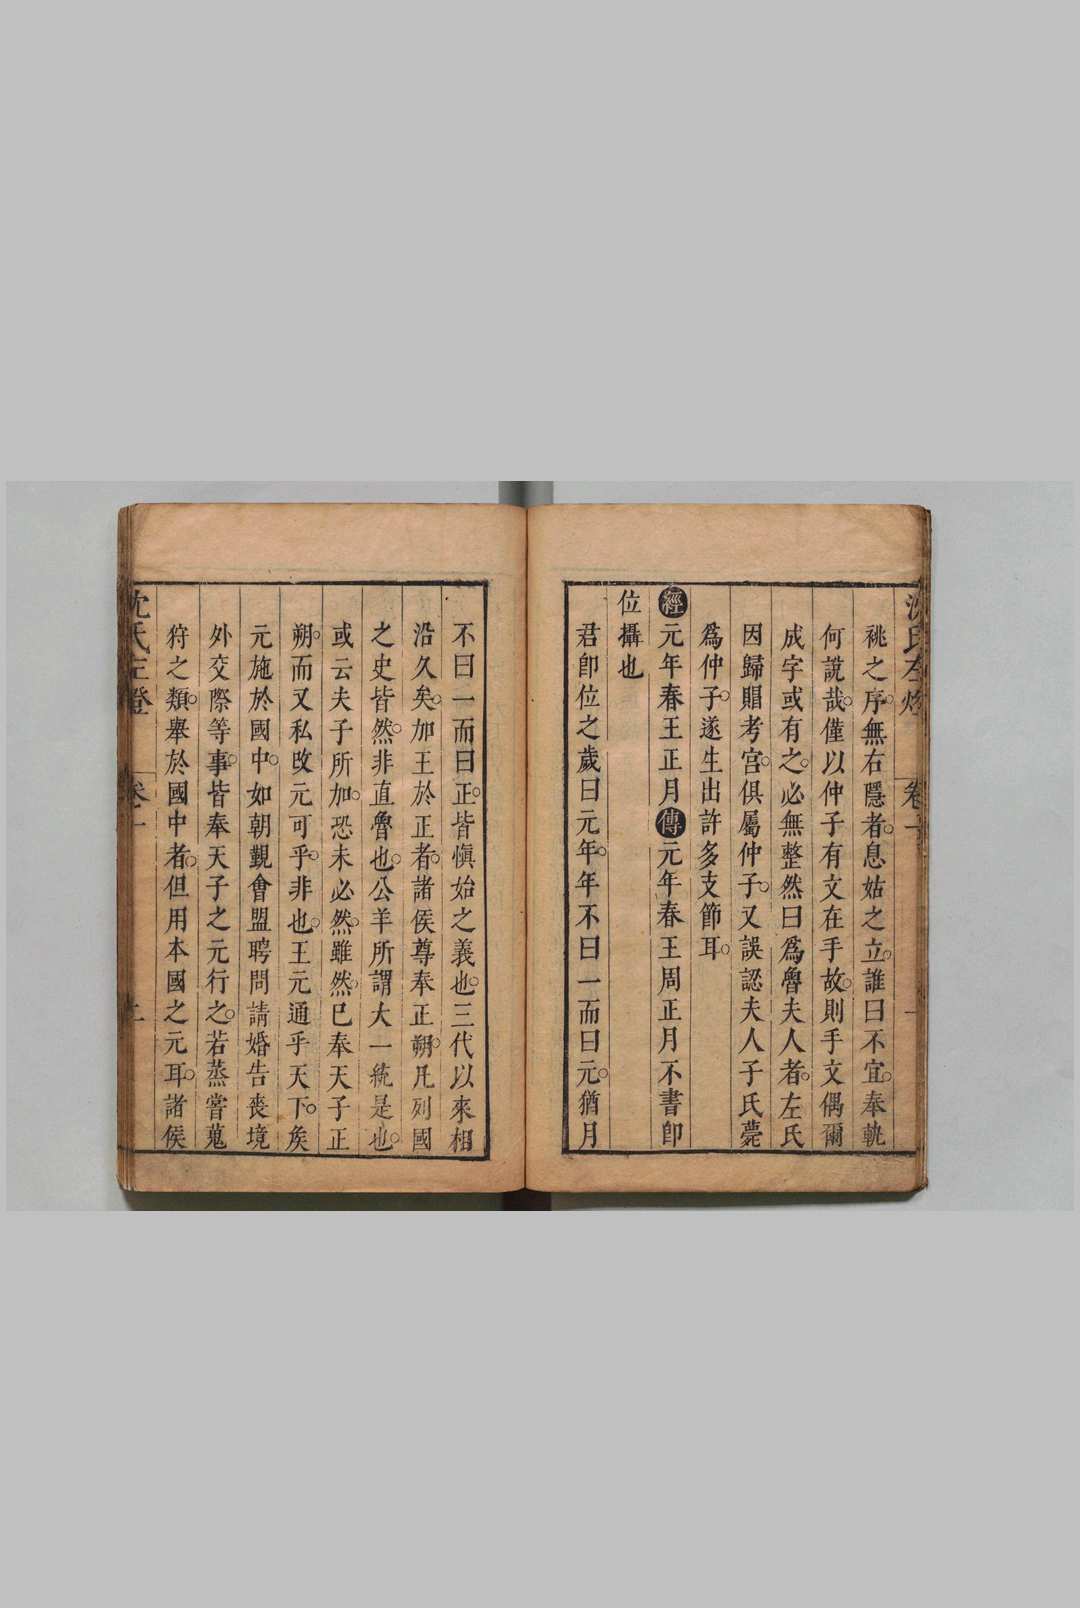 祧之序無右隱者息姑之立誰曰不宜奉軏
何說哉僅以仲子有文在手故則手文偶爾
成字或有之必無整然曰爲魯夫人者左氏
因歸賵考宮俱屬仲子又誤認夫人子氏薨
爲仲子遂生出許多支節耳
經元年春王正月傳元年春王周正月不書卽
位攝也
君卽位之歲曰元年年不曰一而曰元猶月
不曰一而曰正皆愼始之義也三代以來相
沿久矣加王於正者諸侯尊奉正朔凡列國
之史皆然非直魯也公羊所謂大一統是也
或云夫子所加恐未必然雖然已奉天子正
朔而又私改元可乎非也王元通乎天下矦
元施於國中如朝覲會盟聘問請婚告喪境
外交際等事皆奉天子之元行之若蒸嘗蒐
狩之類舉於國中者但用本國之元耳諸侯
沈氏左燈
卷一